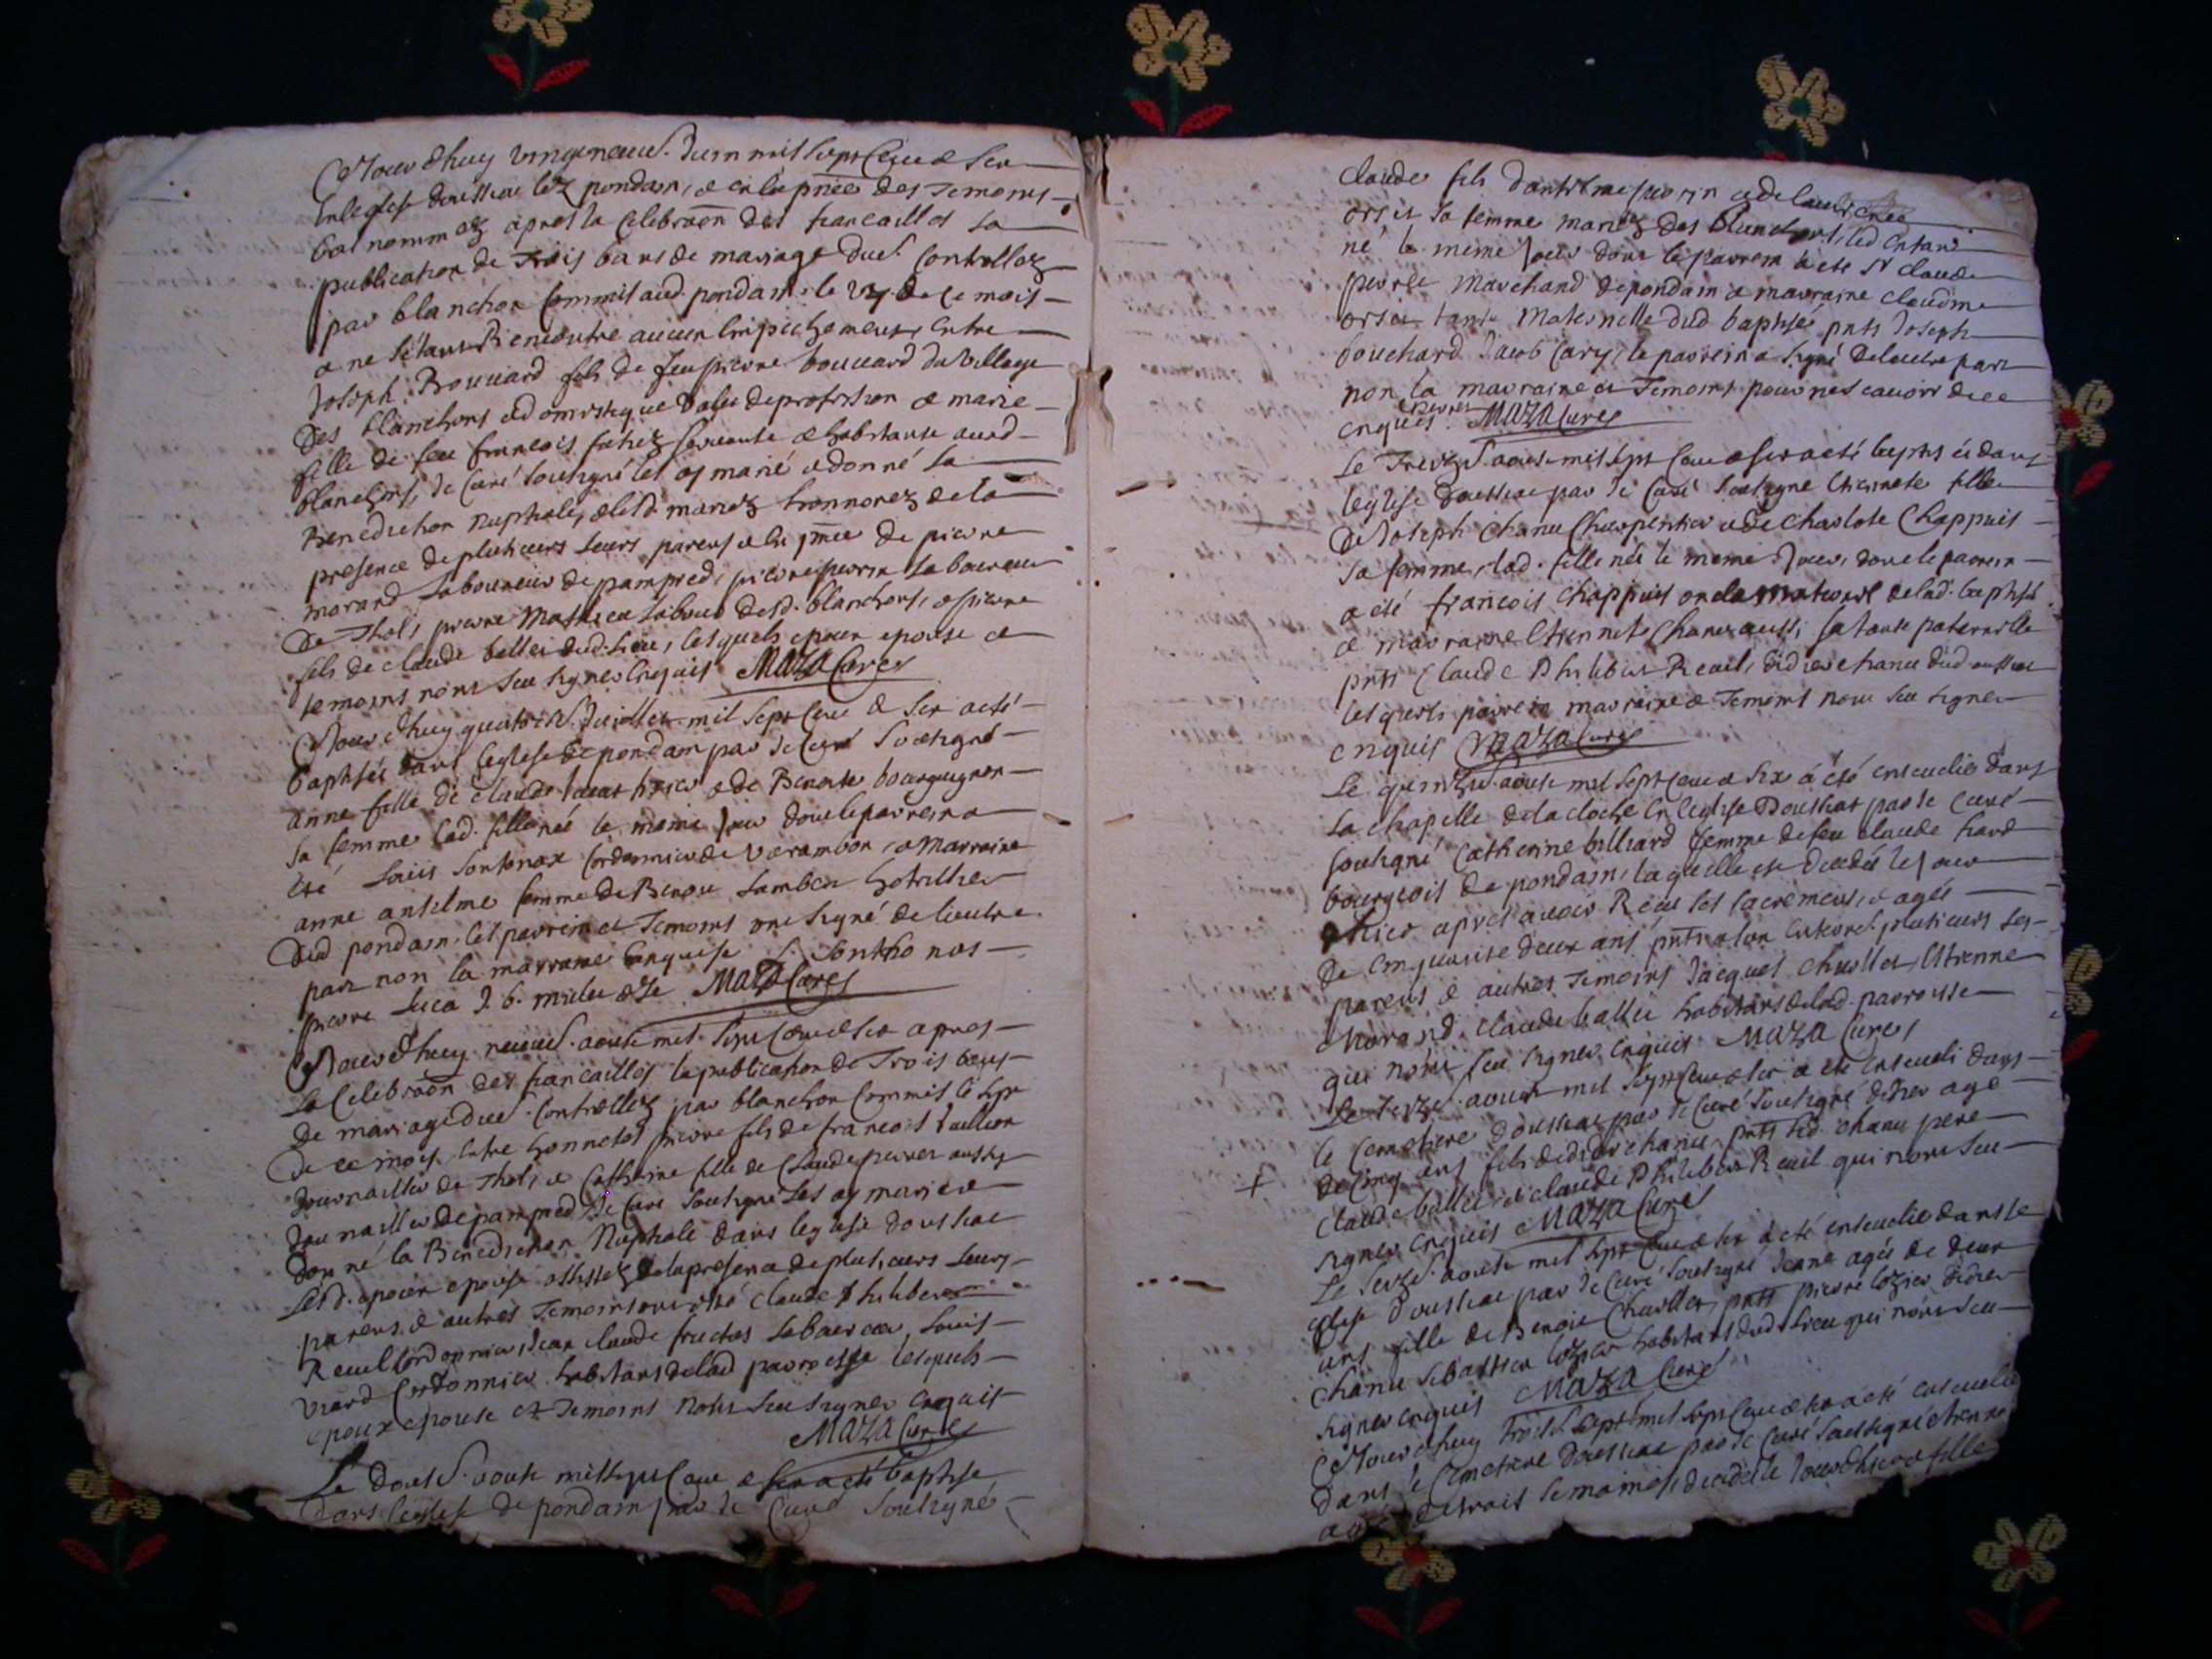 Ce Jourdhuy vingtneuf. Juin mil sept Cent & six
En leglise doussiat lez pondain, & en la pnce des Temoins
bas nommez apres la Celebraon des fiancailles La
publication de Trois bans de mariage deue. Controllez
par blanchon Commis aud. pondain le de ce mois
& ne s'etant Rencontre aucun Empechement, Entre
Joseph Bouvard fils de feu pierre bouvard du village
Des blanchons & domestique Valet de profession & marie
fille de feu francois servante & habitante aud
blanchons, Je Curé soussigné les ay marié & donné La
Benediction nuptiale, & lesd. mariez honnorez de la
presence de plusieurs leurs parens & en la pnce de pierre
morand Laboureur de pampied, pierre perrin Laboureur
De Thol, pierre Mathieu Labour desd. blanchons, & pierre
fils de Claude ballet dud. Lieu, lesquels epoux epouse &
temoins nont sceu signer Enquis MAZA Curez
Ce Jourdhuy quatorze. Juillet mil sept Cent & six a eté
baptisée dans Leglise de pondain par Je Curé Soussigné
anne fille de claude & de Benoite bourguignon
sa femme Lad. fille née le meme Jour dont le parrein a
été Louis sontonax Cordonnier de Varambon, & Marraine
anne anselme femme de Benoit Lambert hotellier
Dud pondain, les parrein et Temoins ont signé de lautre
part non la marraine Enquise L. Sonthonas
pierre Luca J. B. & Je MAZA Curez
Ce Jourdhuy neuvie. aoust mil sept Cent & six apres
La Celebraon des fiancailles la publication de Trois bans
De mariage deue. Controllez par blanchon Commis le sept
De ce mois, Entre honnetes pierre fils de francois
Journaillier de Thol, & Catherine fille de Claude perrin aussy
Journaillier de pampied, Je Curé soussigné Les ay marié &
Donné la Benediction Nuptiale dans leglise doussiat
Lesd. epoux epouse assistez de la presence de plusieurs leurs
parens, & autres Temoins ont esté claude philibert
Reveil Cordonnier, Jean claude fructus Laboureur, Louis
Viard Cordonnier habitans de lad parroisse lesquels
epoux epouse et Temoins nont sceu signer Enquis
MAZA Curé
Le douze. aoust mil sept Cent & six a eté baptisé
Dans leglise de pondain par Je Curé Soussigné
Claude fils danthelme perrin & de
orset sa femme mariez des Blanchons, led Enfant
né le meme Jour dont le parrein a eté Sr claude
perret Marchand de pondain & marraine claudine
orset tante Maternelle dud baptisé pnts Joseph
bouchard Jacob Cary, le parrein a signé de lautre part
non la marraine et Temoins pour ne scavoir de ce
Enquis MAZA Curez
Le Treize. aoust mil sept Cent & six a eté baptisée dans
leglise doussiat par Je Curé Soussigné Etiennete fille
De Joseph Chanu Charpentier & de Charlote Chappuis
sa femme, Lad. fille née le meme Jour, dont le parrein
a eté francois Chappuis oncle Maternel de lad. baptisée
& marraine Etiennete Chanu aussi sa tante paternelle
pnts Claude Philibert Reveil, Didier chanu dud oussiat
lesquels parrein marraine & Temoins nont sceu signer
Enquis MAZA Curé
Le quinze. aoust mil sept Cent & six a été Ensevelie dans
La chapelle de la cloche En leglise Doussiat par Je Curé
soussigné Catherine billiard femme de feu claude
bourgeois de pondain, laquelle est decedée le Jour
dhier apres avoir Receu les sacremens, & agée
De Cinquante deux ans pnts a son Enterremt. plusieurs ses
parens & autres Temoins Jacques Chuollet, Etienne
Morand, claude ballet habitans de lad. parroisse
qui nont sceu signer Enquis MAZA Curez
Le Seize. aoust mil sept Cent & six a eté Enseveli dans
le Cemetiere doussiat par Je Curé Soussigné didier agé
De Cinq ans fils de didier chanu pnts led. chanu pere
Claude ballet et claude Philibert Reveil qui nont sceu
signer Enquis MAZA Curé
Le Seize. aoust mil sept Cent & six a eté ensevelie dans Le
eglise doussiat par Je Curé soussigné Jeanne agée de deux
ans fille de Benoit Chuollet, pnts pierre Cozier didier
Chanu Sebastien Cozier habitans dud Lieu qui nont sceu
signer Enquis MAZA Curé
Ce Jourdhuy Trois. Septe. mil sept Cent & six a eté ensevelie
dans le Cimetiere doussiat par Je Curé Soussigné etienne
agée de trois semaines, decedée le Jour dhier & fille